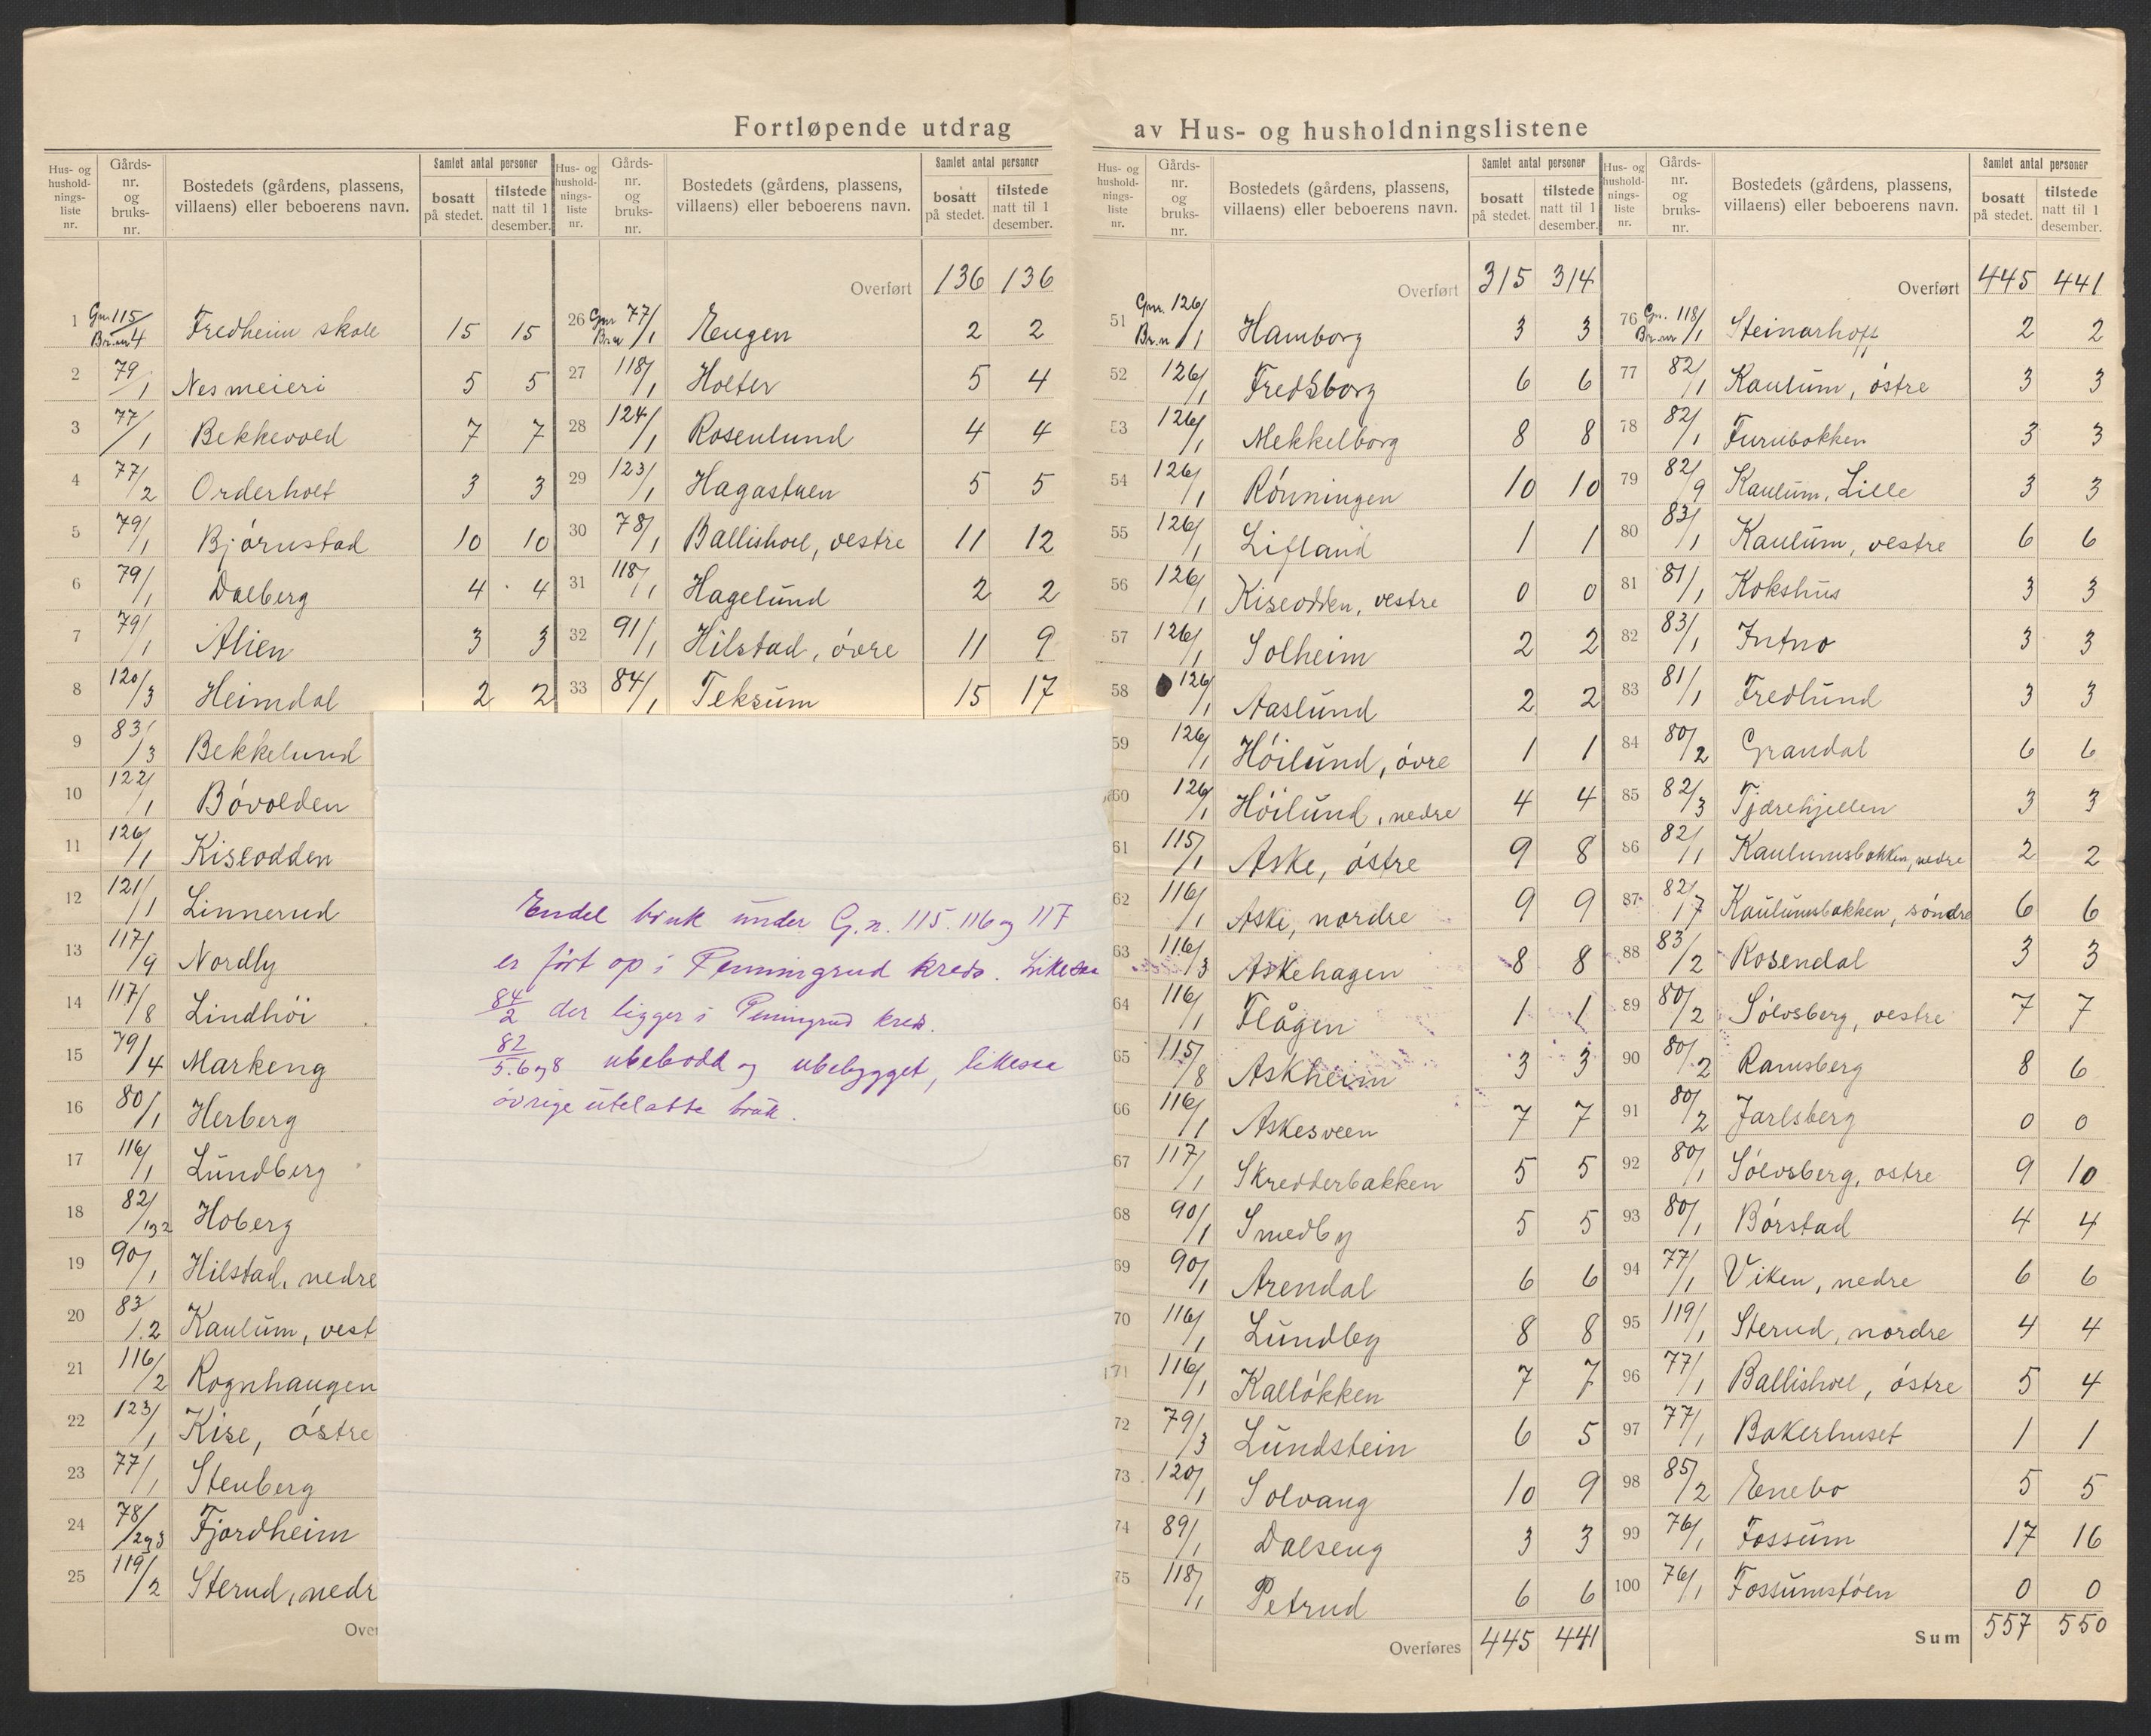 Fortløpende utdrag av Hus- og husholdningslistene
Hus- og husholdningsliste nr. | Gårds-nr. og bruks-nr. | Bostedets (gårdens, plassens, villaens) eller beboerens navn. | Samlet antal personer | bosatt på stedet. | tilstede natt til 1 desember.
1 Gnr 115/ Br.nr 4 Fredheim skole 15 15
2 79/1 Nes meieri 5 5
3 77/1 Bekkevold 7 7
4 77/2 Orderholt 3 3
5 79/1 Bjørnstad 10 10
6 79/1 Dalberg 4 4
7 79/1 Alien 3 3
8 120/3 Heimdal 2 2
9 83/3 Bekkelund
10 122/1 Bøvolden
11 126/1 Kiseodden
12 121/1 Linnerud
13 117/9 Nordly
14 117/8 Lindhøi
15 79/4 Markeng
16 80/1 Herberg
17 116/1 Lundberg
18 82/1og2 Hoberg
19 90/1 Hilstad, nedre
20 83/1.2 Kaulum, vest
21 116/2 Rognhaugen
22 123/1 Kise, østre
23 77/1 Stenberg
24 78/2og3 Fjordheim
25 119/2 Sterud, nedr
Over
Hus- og husholdningsliste nr. | Gårds-nr. og bruks-nr. | Bostedets (gårdens, plassens, villaens) eller beboerens navn. | Samlet antal personer | bosatt på stedet. | tilstede natt til 1 desember.
Overført 136 136
26 Gnr 77/ Br.nr 1 Engen 2 2
27 118/1 Holter 5 4
28 124/1 Rosenlund 4 4
29 123/1 Hagastuen 5 5
30 78/1 Ballishoel, vestre 11 12
31 118/1 Hagelund 2 2
32 91/1 Hilstad, øvre 11 9
33 84/1 Teksum 15 17
Endel bruk under G.n. 115. 116 og 117
er ført op i Penningrud kreds. Likesaa
84/2 der ligger i Penningrud kreds.
82/5.6 og 8 ubebodd og ubebygget, likesaa
øvrige utelatte bruk.
Hus- og husholdningsliste nr. | Gårds-nr. og bruks-nr. | Bostedets (gårdens, plassens, villaens) eller beboerens navn. | Samlet antal personer | bosatt på stedet. | tilstede natt til 1 desember.
Overført 315 314
51 Gnr. 126/ Br.n 1 Hamborg 3 3
52 126/1 Fredsborg 6 6
53 126/1 Mekkelborg 8 8
54 126/1 Rønningen 10 10
55 126/1 Lifland 1 1
56 126/1 Kiseodden, vestre 0 0
57 126/1 Solheim 2 2
58 126/1 Aaslund 2 2
59 126/1 Høilund, øvre 1 1
60 126/1 Høilund, nedre 4 4
61 115/1 Aske, østre 9 8
62 116/1 Aske, nordre 9 9
63 116/3 Askehagen 8 8
64 116/1 Flågen 1 1
65 115/8 Askheim 3 3
66 116/1 Askesveen 7 7
67 117/1 Skredderbakken 5 5
68 90/1 Smedby 5 5
69 90/1 Arendal 6 6
70 116/1 Lundby 8 8
71 116/1 Kalløkken 7 7
72 79/3 Lundstein 6 5
73 120/1 Solvang 10 9
74 89/1 Dalseng 3 3
75 118/1 Petrud 6 6
Overføres 445 441
Hus- og husholdningsliste nr. | Gårds-nr. og bruks-nr. | Bostedets (gårdens, plassens, villaens) eller beboerens navn. | Samlet antal personer | bosatt på stedet. | tilstede natt til 1 desember.
Overført 445 441
76 Gn. 118/ Br.nr 1 Steinarhoff 2 2
77 82/1 Kaulum, østre 3 3
78 82/1 Furubakken 3 3
79 82/9 Kaulum, Lille 3 3
80 83/1 Kaulum, vestre 6 6
81 81/1 Kokshus 3 3
82 83/1 Intno 3 3
83 81/1 Fredlund 3 3
84 80/2 Grandal 6 6
85 82/3 Tjærehjellen 3 3
86 82/1 Kaulumsbakken, nedre 2 2
87 82/7 Kaulumsbakken, søndre 6 6
88 83/2 Rosendal 3 3
89 80/2 Sølvsberg, vestre 7 7
90 80/2 Ramsberg 8 6
91 80/2 Jarlsberg 0 0
92 80/1 Sølvsberg, østre 9 10
93 80/1 Børstad 4 4
94 77/1 Viken, nedre 6 6
95 119/1 Sterud, nordre 4 4
96 77/1 Ballishoel, østre 5 4
97 77/1 Bakerhuset 1 1
98 85/2 Enebo 5 5
99 76/1 Fossum 17 16
100 76/1 Fossumstøen 0 0
Sum 557 550